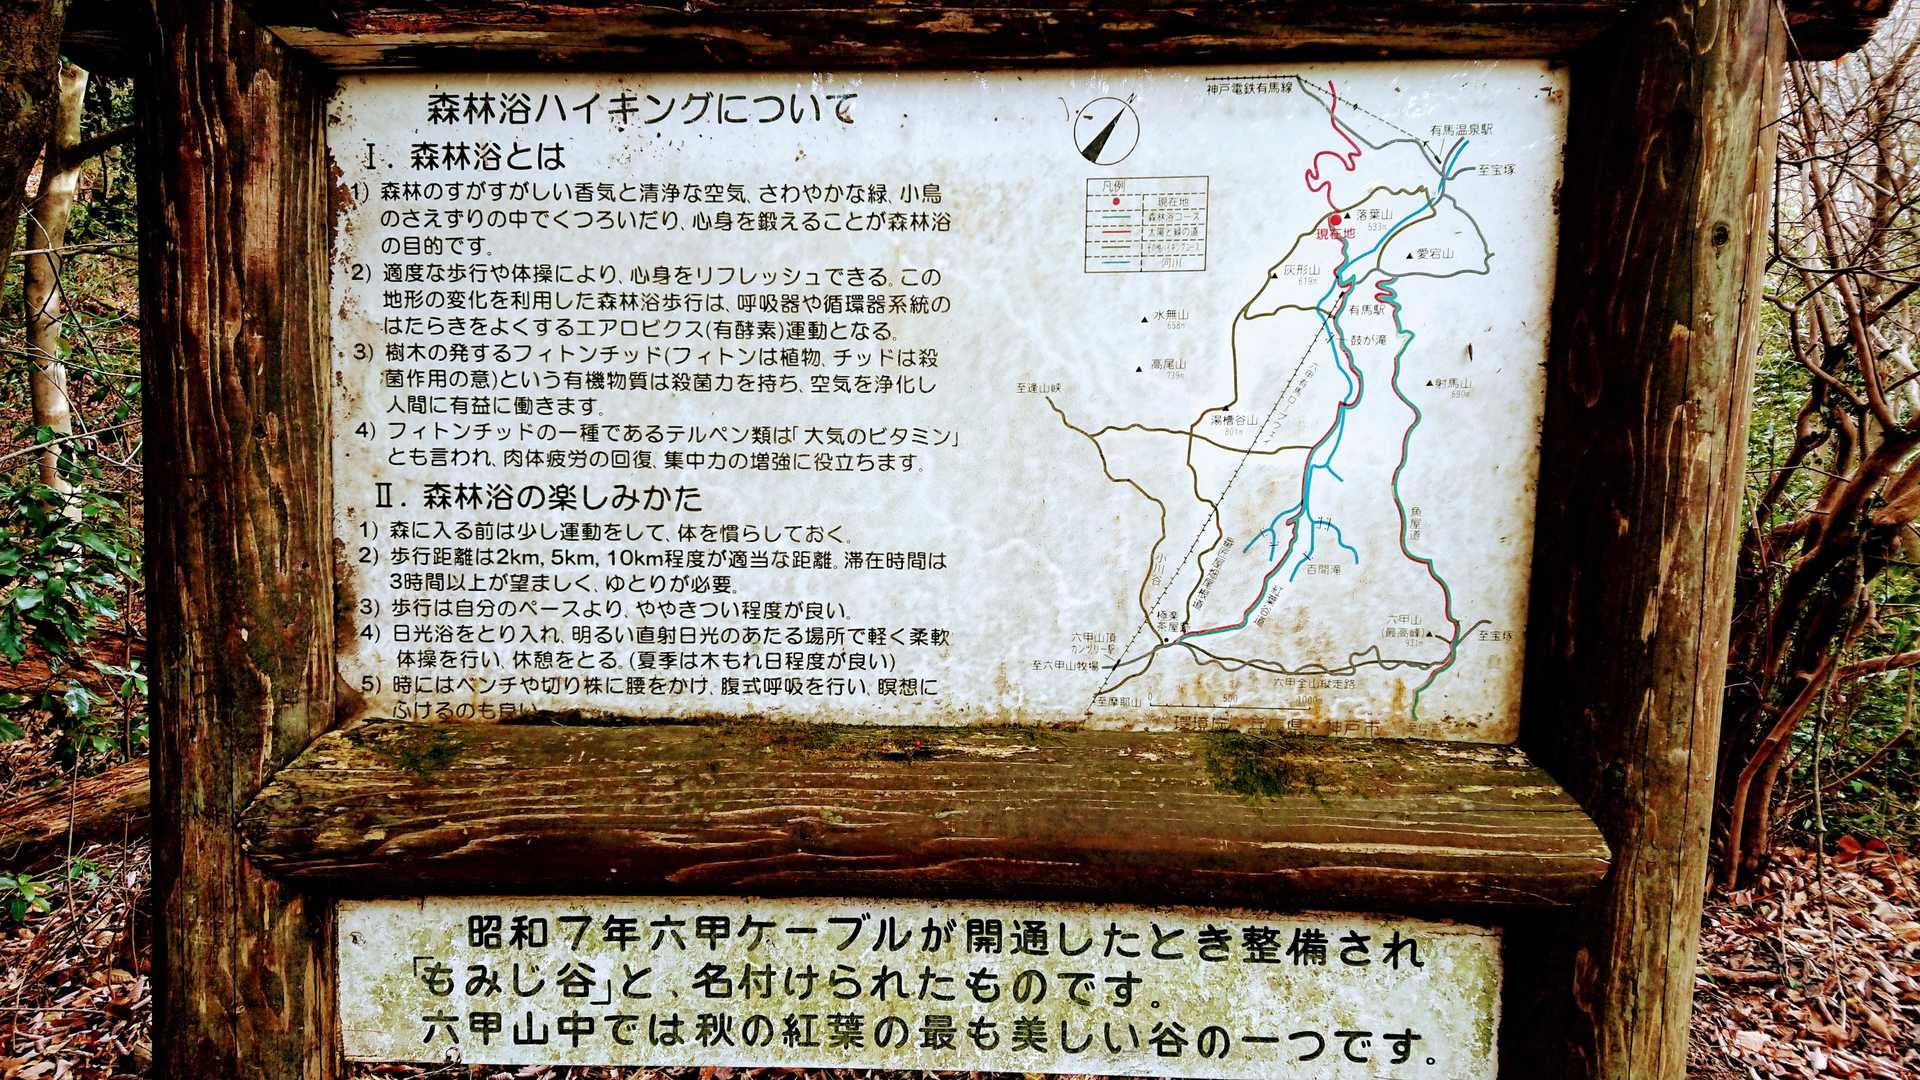 森林浴ハイキングについて
Ⅰ. 森林浴とは
1) 森林のすがすがしい香気と清浄な空気、さわやかな緑、小鳥
のさえずりの中でくつろいだり、心身を鍛えることが森林浴
の目的です。
2) 適度な歩行や体操により、心身をリフレッシュできる。この
地形の変化を利用した森林浴歩行は、呼吸器や循環器系統の
はたらきをよくするエアロビクス(有酵素)運動となる。
3) 樹木の発するフィトンチッド(フィトンは植物、チッドは殺
菌作用の意)という有機物質は殺菌力を持ち、空気を浄化し
人間に有益に働きます。
4) フィトンチッドの一種であるテルペン類は「大気のビタミン」
とも言われ、肉体疲労の回復、集中力の増強に役立ちます。
Ⅱ. 森林浴の楽しみかた
1) 森に入る前は少し運動をして、体を慣らしておく。
2) 歩行距離は2km, 5km, 10km程度が適当な距離。滞在時間は
3時間以上が望ましく、ゆとりが必要。
3) 歩行は自分のペースより、ややきつい程度が良い。
4) 日光浴をとり入れ、明るい直射日光のあたる場所で軽く柔軟
体操を行い、休憩をとる。(夏季は木もれ日程度が良い)
5) 時にはベンチや切り株に腰をかけ、腹式呼吸を行い、瞑想に
ふけるのも良い
神戸電鉄有馬線
N
有馬温泉駅
至宝塚
凡例
現在地
森林浴コース
太陽と緑の道
河川
落葉山
533m
現在地
愛宕山
灰形山
619m
水無山
658m
有馬駅
鼓が滝
高尾山
739m
六甲有馬ロープウェイ
至蓬山峡
射馬山
690m
湯槽谷山
801m
魚屋道
小川谷
百間滝
紅葉谷道
極楽
茶屋
六甲山
(最高峰)
931m
至宝塚
六甲山頂
カンツリー駅
至六甲山牧場
六甲全山縦走路
至摩耶山
0 500 1000
環境庁 兵庫県 神戸市
昭和7年六甲ケーブルが開通したとき整備され
「もみじ谷」と、名付けられたものです。
六甲山中では秋の紅葉の最も美しい谷の一つです。